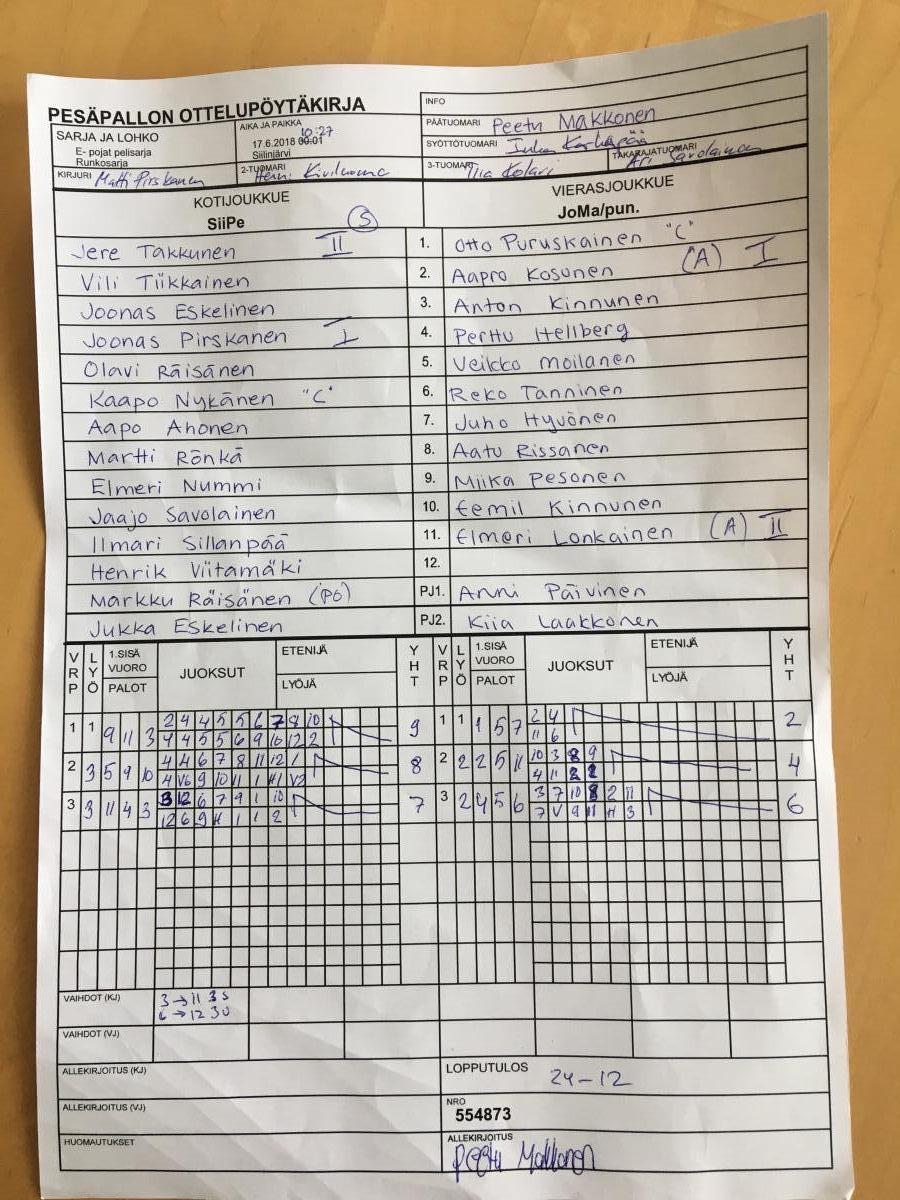 PESÄPALLON OTTELUPÖYTÄKIRJA
INFO
SARJA JA LOHKO
E- pojat pelisarja
Runkosarja
AIKA JA PAIKKA
10:27
17.6.2018 00:01
Siilinjärvi
PÄÄTUOMARI Peetu Makkonen
SYÖTTÖTUOMARI Juha Karhapää
KIRJURI Matti Pirskanen
2-TUOMARI Henri
3-TUOMARI Tiia Kolari
TAKARAJATUOMARI Savolainen
KOTIJOUKKUE
SiiPe (S)
VIERASJOUKKUE
JoMa/pun.
Jere Takkunen II 1. Otto Puruskainen "C"
Vili Tiikkainen 2. Aapro Kosunen (A) I
Joonas Eskelinen 3. Anton Kinnunen
Joonas Pirskanen I 4. Perttu Hellberg
Olavi Räisänen 5. Veikko Moilanen
Kaapo Nykänen "C" 6. Reko Tanninen
Aapo Ahonen 7. Juho Hyvönen
Martti Rönkä 8. Aatu Rissanen
Elmeri Nummi 9. Miika Pesonen
Jaajo Savolainen 10. Eemil Kinnunen
Ilmari Sillanpää 11. Elmeri Lonkainen (A) II
Henrik Viitamäki 12.
Markku Räisänen (PG) PJ1. Anni Päivinen
Jukka Eskelinen PJ2. Kiia Laakkonen
VRP LYÖ 1.SISÄ VUORO PALOT JUOKSUT ETENIJÄ LYÖJÄ YHT VRP LYÖ 1.SISÄ VUORO PALOT JUOKSUT ETENIJÄ LYÖJÄ YHT
1 1 9 11 3 2 4 4 5 5 6 7 8 10 9 1 1 1 5 7 2 4 2
4 4 5 5 6 9 10 12 2 11 6
2 3 5 9 10 4 4 6 7 8 11 12 1 8 2 2 2 5 11 10 3 8 9 4
4 V6 9 10 11 1 H1 V2 4 11 2 2
3 3 11 4 3 3 12 6 7 9 1 10 7 3 2 4 5 6 3 7 10 8 2 11 6
12 6 9 H 1 1 2 7 V 9 11 H 3
VAIHDOT (KJ) 3→11 3s
6→12 3U
VAIHDOT (VJ)
ALLEKIRJOITUS (KJ)
LOPPUTULOS 24-12
ALLEKIRJOITUS (VJ)
NRO
554873
HUOMAUTUKSET
ALLEKIRJOITUS
Peetu Makkonen